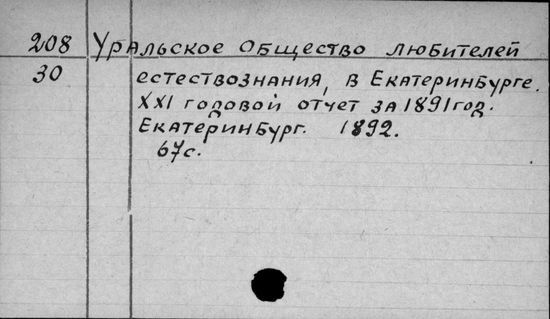 208 Уральское Общество любителей
30 естествознания, в Екатеринбурге.
XXI годовой отчет за 1891 год.
Екатеринбург. 1892.
67с.